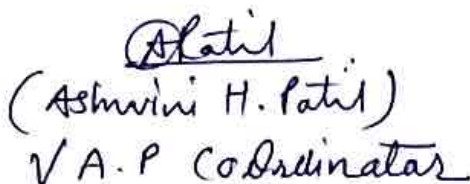 APatil
(Ashwini H. Patil)
V A.P CoOrdinator